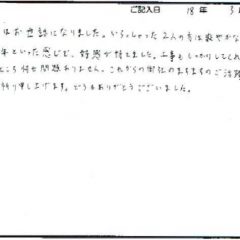 ご記入日 18年 3
はお世話になりました。いらっしゃった2人の方は爽やかな
年といった感じで、好感が持てました。工事もしっかりしてくれ
ところ何も問題ありません。これからの御社のますますのご活躍
祈り申し上げます。どうもありがとうございました。